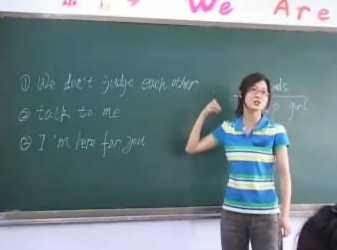 We Are
① We don't judge each other
② talk to me
③ I'm here for you
girl